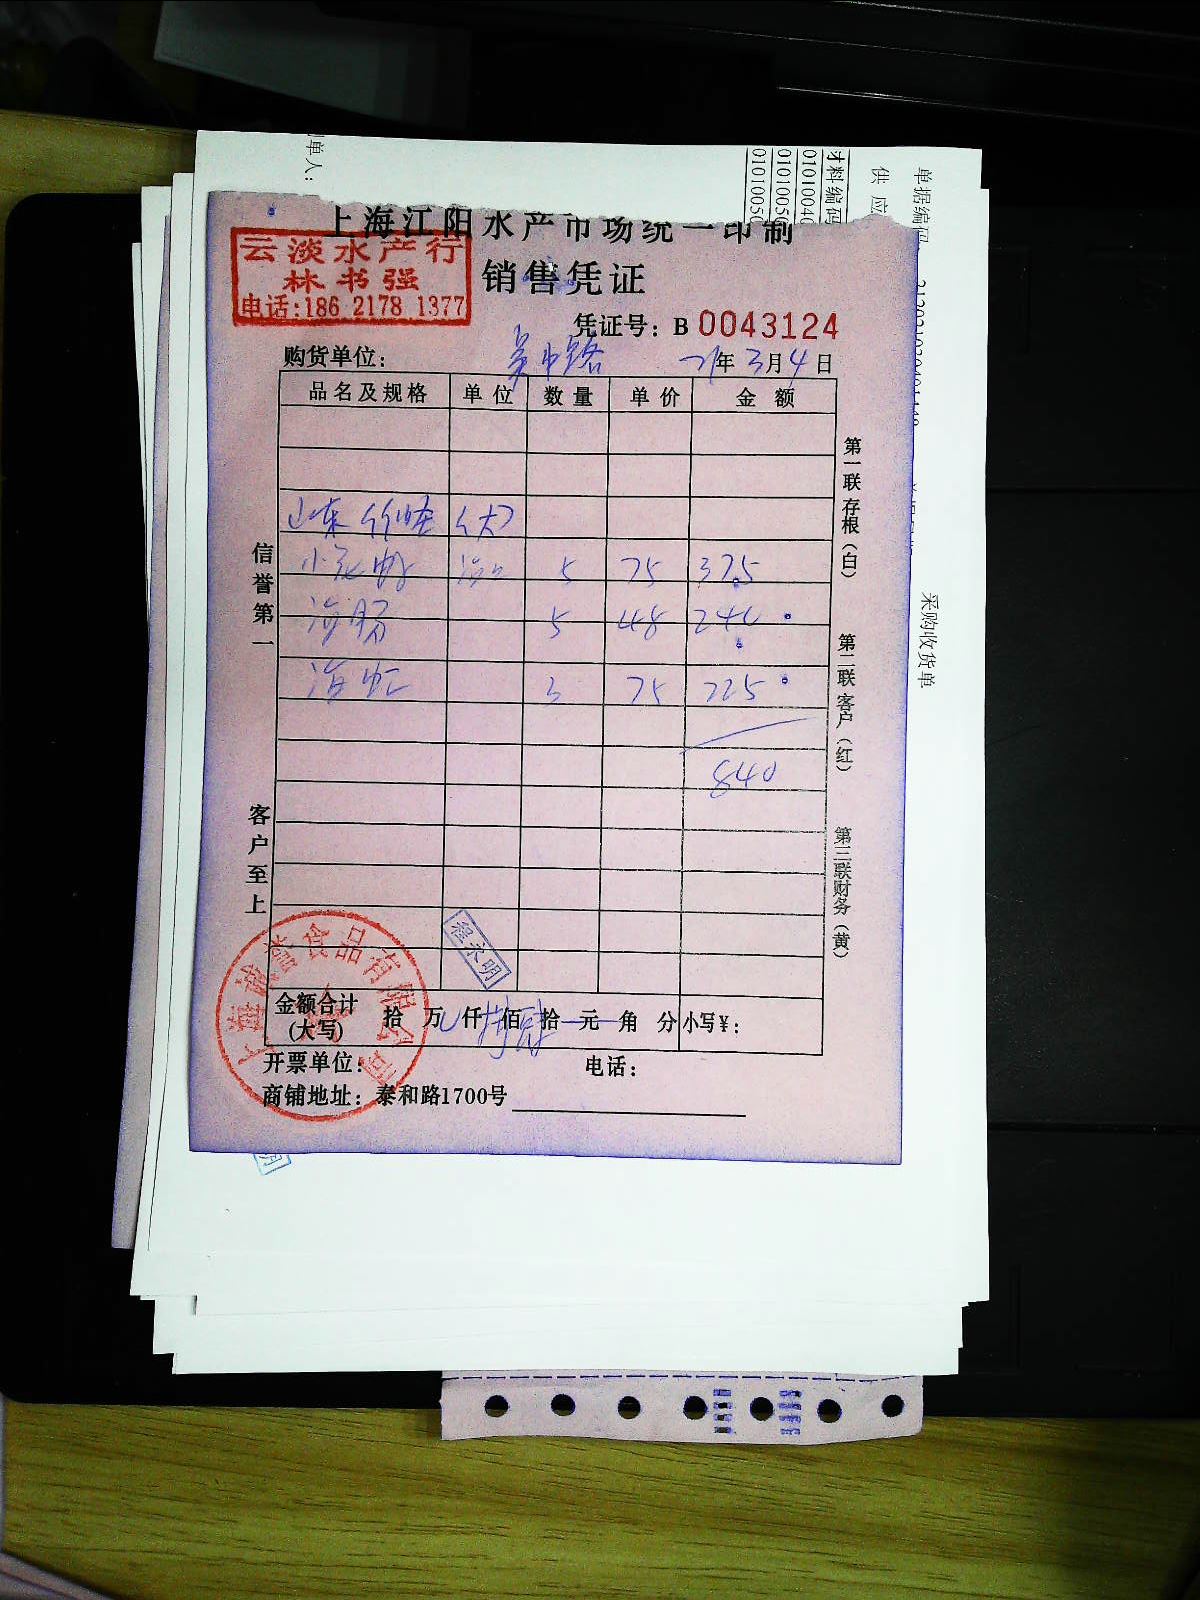 单人:
材料编码
01010040
0101005
0101005
供应
单据编码
采购收货单
上海江阳水产市场统一印制
云淡水产行
林书强
电话:186 2178 1377
销售凭证
凭证号: B 0043124
购货单位: 吴中路 21年3月4日
品名及规格 单位 数量 单价 金额
山东 (大)
5 75 375
海肠 5 48 240
海虹 3 75 225
840
信誉第一
客户至上
第一联存根(白)
第二联客户(红)
第三联财务(黄)
程永明
食品有限公司
金额合计(大写) 拾 万 仟 佰 拾 元 角 分 小写¥:
开票单位: 电话:
商铺地址: 泰和路1700号
明